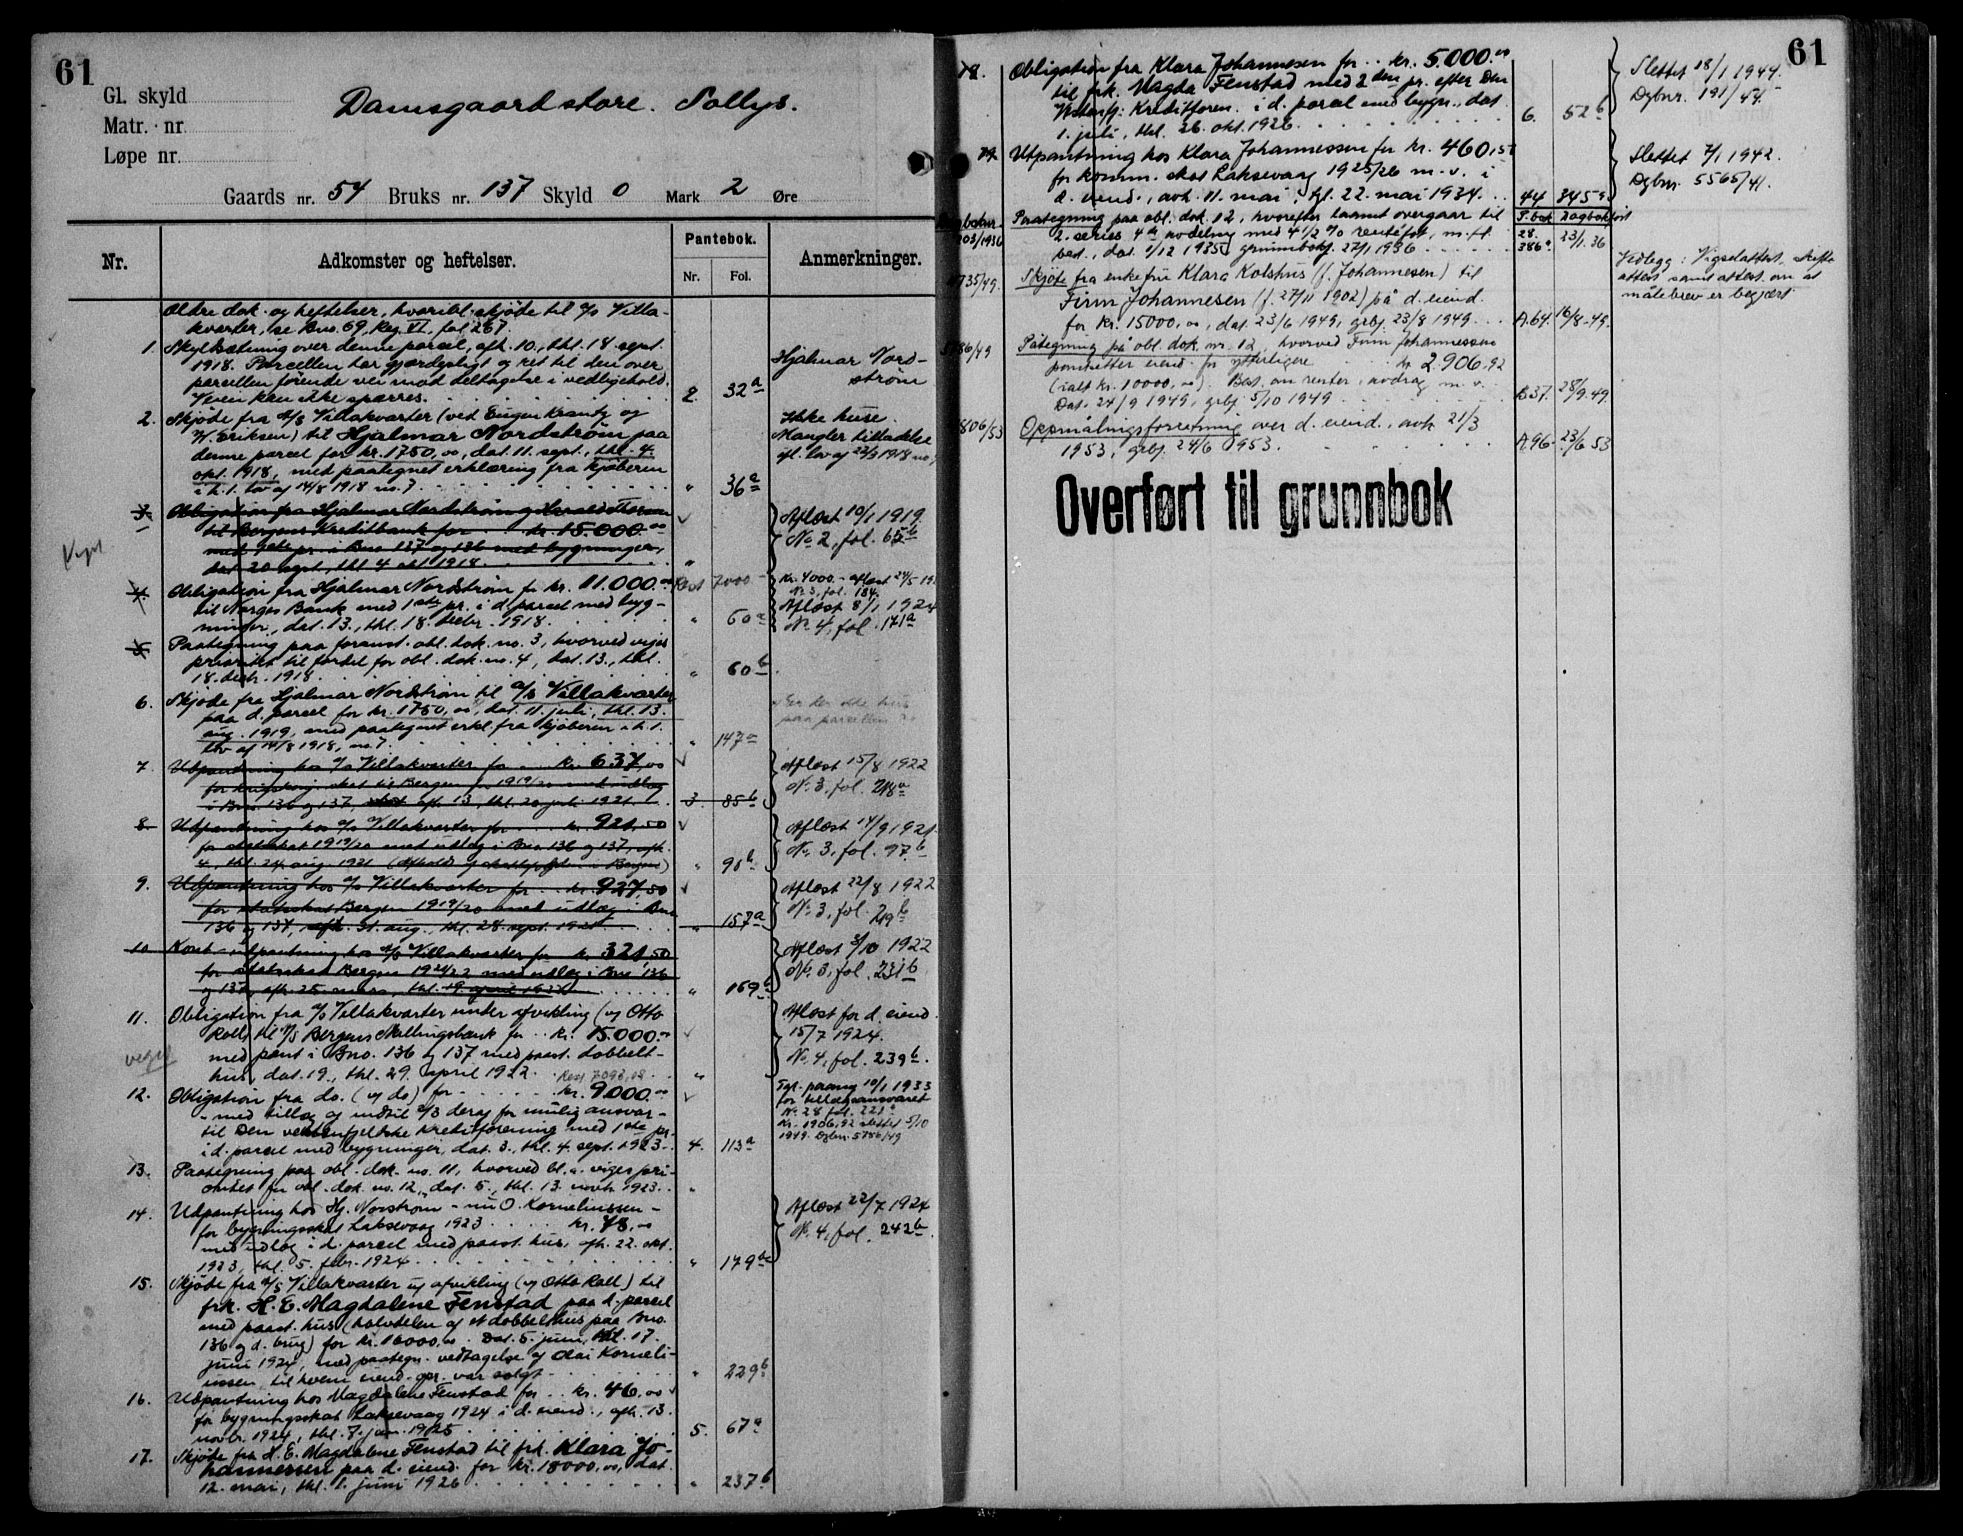 61
Gl. skyld
Matr. nr.
Løpe nr.
Damsgaard store. Sollys.
Gaards nr. 54 Bruks nr. 137 Skyld 0 Mark 2 Øre
Nr. Adkomster og heftelser. Pantebok. Nr. Fol. Anmerkninger.
Ældre dok. og heftelser, hvoribl. skjøde til A/S Villa-
kvarter, se Bno. 69, Reg. VI, fol. 267.
1. Skyldsætning over denne parcel, afh. 10., thl. 18. sept.
1918. Parcellen har gjærdepligt og ret til den over
parcellen førende vei mod deltagelse i vedligehold.
Veien kan ikke spærres. 2. 32a
Hjalmar Nord-
strøm
2. Skjøde fra A/S Villakvarter (ved Eugen Krantz og
W. Eriksen) til Hjalmar Nordstrøm paa
denne parcel for kr. 1750,00, dat. 11. sept., thl. 4.
okt. 1918, med paategnet erklæring fra kjøberen
i h. t. lov af 14/8 1918 no. 7 " 36a
Ikke huse.
Mangler tilladelse
3. Obligation fra Hjalmar Nordstrøm og
til Bergens Kreditbank for kr. 15.000.00
med pr. i Bno 137 og 136 med bygninger,
dat. 20 sept., thl. 4 okt. 1918. "
Aflæst 10/1 1919.
No. 2, fol. 65b
4. Obligation fra Hjalmar Nordstrøm for kr. 11.000.00 Rest 7000.-
til Norges Bank med 1ste pr. i d. parcel med byg-
ninger, dat. 13., thl. 18. decbr. 1918. " 60a
Kr. 4000.- aflæst 24/5
No. 3, fol. 184.
Aflæst 8/1 1924
No. 4, fol. 171a
5. Paategning paa foranst. obl. dok. no. 3, hvorved viges
prioritet til fordel for obl. dok. no. 4, dat. 13., thl.
18. decbr. 1918. " 60b
6. Skjøde fra Hjalmar Nordstrøm til A/S Villakvarter
paa d. parcel for kr. 1750,00, dat. 11. juli, thl. 13.
aug. 1919, med paategnet erkl. fra kjøberen i h. t.
lov af 14/8 1918, no. 7. " 147a
Er der ikke hus
paa parcellen?
7. Udpantning hos A/S Villakvarter for kr. 637,00
for skat til Bergen for 1919/20 med utlæg
i Bno 136 og 137, afh. 13., thl. 20. juli 1921. 3. 85b
Aflæst 15/8 1922
No. 3, fol. 218a
8. Udpantning hos A/S Villakvarter for kr. 921,50
for statsskat 1919/20 med utlæg i Bno 136 og 137, afh.
4., thl. 24. aug. 1921 " 90b
Aflæst 14/9 1921.
No. 3, fol. 97b
9. Udpantning hos A/S Villakvarter for kr. 927,50
for statsskat Bergen 1919/20 med utlæg i Bno
136 og 137, afh. 31. aug., thl. 28. sept. 1921 " 157a
Aflæst 22/8 1922
No. 3, fol. 219b
10. utpantning hos A/S Villakvarter for kr. 321,50
for statsskat Bergen 1921/22 med utlæg i Bno 136
og 137, afh. 25. mars, thl. 19. april 1922 " 169b
Aflæst 3/10 1922
No. 3, fol. 231b
11. Obligation fra A/S Villakvarter under afvikling (v. Otto
Roll) til A/S Bergens Mæklingsbank for kr. 15.000.00
med pant i Bno. 136 og 137 med paast. dobbelt-
hus, dat. 19., thl. 29. april 1922. "
Aflæst for d. eiend.
15/7 1924.
No. 4, fol. 239b.
12. Obligation fra do. (v. do) for kr. 9000.00
- med tillæg og indtil 2/3 deraf for mulig ansvar -
til Den vestenfjeldske Kreditforening med 1ste pr.
i d. parcel med bygninger, dat. 3., thl. 4. sept. 1923. 4. 113a
Tgl. paateg. 10/1 1933
for tillægsansvaret
No. 28 fol. 221
Kr. 1906,92 slettet 5/10
1949. Dgbnr. 5786/49
13. Paategning paa obl. dok. no. 11, hvorved bl. a. viges pri-
oritet for obl. dok. no. 12, dat. 5., thl. 13. novbr. 1923. "
14. Udpantning hos Hj. Norstrøm - nu O. Korneliussen -
for bygningsskat Laksevaag 1923 kr. 48,00
med utlæg i d. parcel med paast. hus, afh. 22. okt.
1923, thl. 5. febr. 1924 " 179b
Aflæst 22/7 1924
No. 4, fol. 242b.
15. Skjøde fra A/S Villakvarter u/ afvikling (v. Otto Roll) til
frk. H. E. Magdalene Fenstad paa d. parcel
med paast. hus (halvdelen af et dobbelthus paa Bno.
136 og d. brug) for kr. 16000,00. Dat. 5. juni, thl. 17.
juni 1924, med paategn. vedtagelse af Olai Korneli-
ussen, til hvem eiend. opr. var solgt " 229b
16. Udpantning hos Magdalene Fenstad for kr. 46,00
for bygningsskat Laksevaag 1924 i d. eiend., afh. 13.
novbr. 1924, thl. 7. jan. 1925 5. 67a
17. Skjøde fra H. E. Magdalene Fenstad til frk. Klara Jo-
hannessen paa d. eiend. for kr. 18000,00, dat.
12. mai, thl. 1. juni 1926 " 237b
61
18. Obligation fra Klara Johannesen for kr. 5.000.00
til frk. Magda Fenstad med 2den pr. efter Den
Vestenfj. Kreditforen. i d. parcel med bygn., dat.
1. juli, thl. 26. okt. 1926. 6. 52b
Slettet 18/1 1944.
Dgbnr. 191/44.
19. Utpantning hos Klara Johannessen for kr. 460,
for komm. skat Laksevaag 1925/26 m. v. i
d. eiend., avh. 11. mai, tgl. 22. mai 1934. 44 345
Slettet 7/1 1942.
Dgbnr. 5565/41.
P.bok Dagbokført
203/1936 Paategning paa obl. dok. 12, hvorefter laanet overgaar til
2. series 4de avdeling med 4 1/2 % rentefot, m. fl.
best., dat. 2/12 1935, grunnbokf. 27/1 1936 28. 386a 23/1. 36
4735/49. Skjøte fra enkefru Klara Kolshus (f. Johannesen) til
Finn Johannesen (f. 27/11 1902) på d. eiend.
for kr. 15000,00, dat. 23/6 1949, grbf. 23/8 1949. A.64. 16/8-49.
Vedlegg: Vigselattest, skifte-
attest samt attest om at
målebrev er begjært.
5786/49 Påtegning på obl. dok. nr. 12, hvorved Finn Johannessen
pantsetter eiend. for ytterligere kr. 2.906,92
(ialt kr. 10000,00). Best. om renter, avdrag m. v.
Dat. 24/9 1949, grbf. 5/10 1949 B37. 28/9.49.
2806/53 Oppmålingsforretning over d. eiend., avh. 21/3
1953, grbf. 24/6 1953. A.96. 23/6 53
Overført til grunnbok